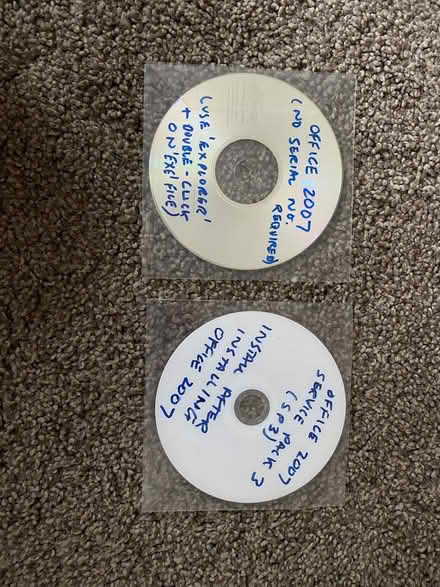 OFFICE 2007
(NO SERIAL NO.
REQUIRED)
(USE 'EXPLORER'
+ DOUBLE-CLICK
ON 'EXE' FILE)
OFFICE 2007
SERVICE PACK 3
(SP3)
INSTALL AFTER
INSTALLING
OFFICE 2007